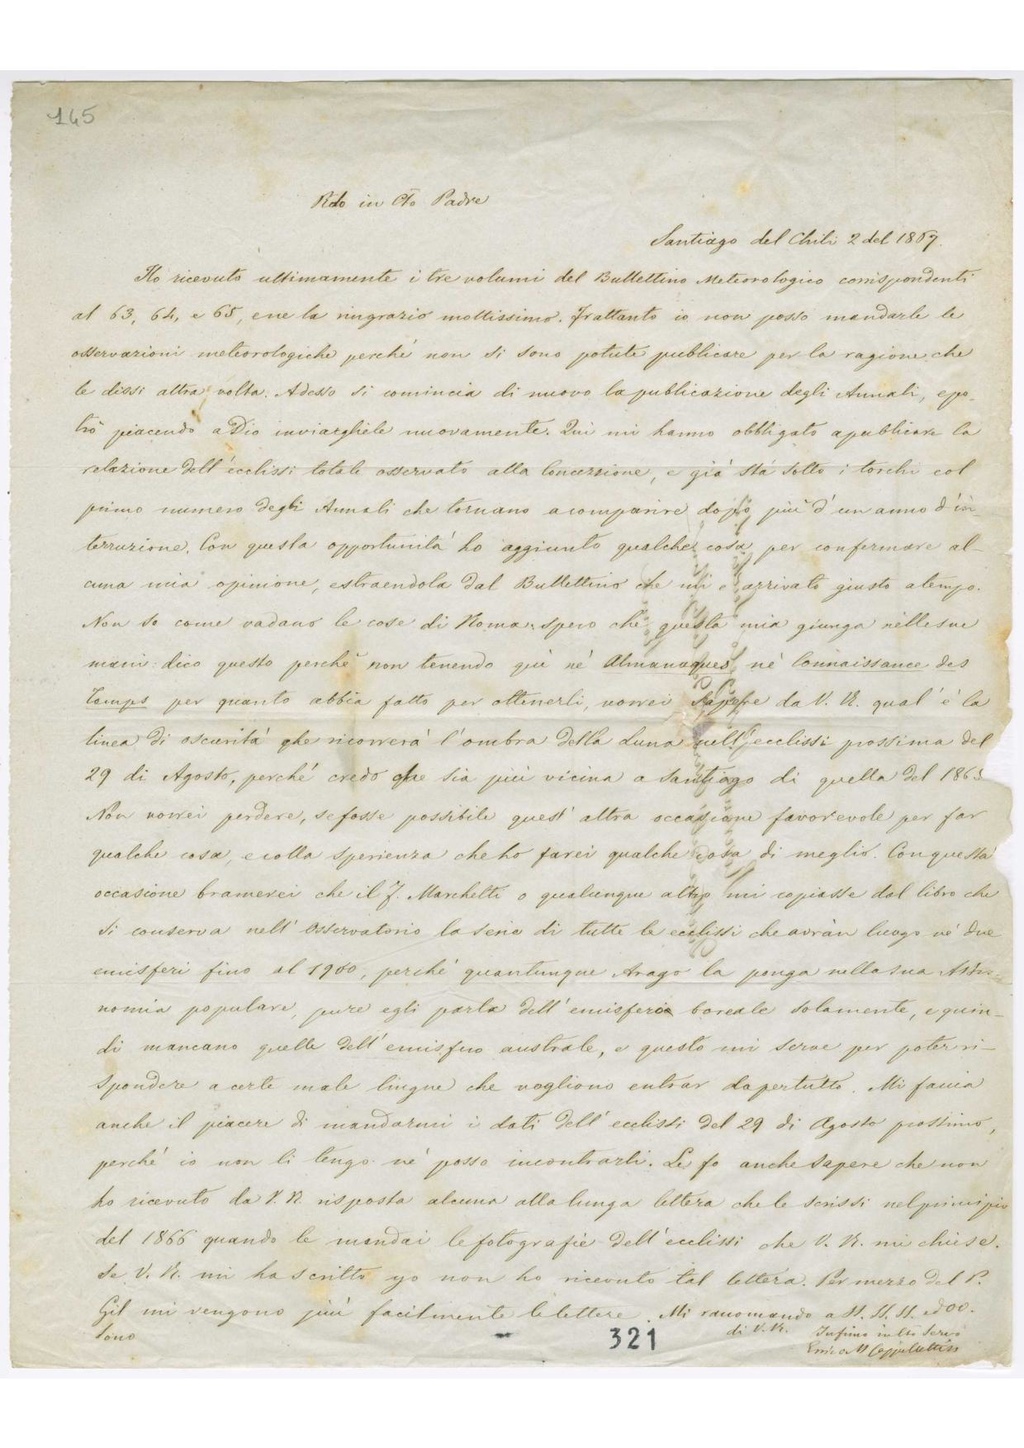 165
Rdo in Cto Padre
Santiago del Chili 2 del 1867.
Ho ricevuto ultimamente i tre volumi del Bullettino Meteorologico corrispondenti
al 63, 64, e 65, e ne la ringrazio moltissimo. Frattanto io non posso mandarle le
osservazioni meteorologiche perché non si sono potute publicare per la ragione che
le dissi altra volta. Adesso si comincia di nuovo la publicazione degli Annali, e po-
trò piacendo a Dio inviarghiele nuovamente. Qui mi hanno obbligato a publicare la
relazione dell'ecclissi totale osservato alla Concezzione, e già stà sotto i torchi col
primo numero degli Annali che tornano a comparire dopo più d'un anno d'in-
terruzione. Con questa opportunità ho aggiunto qualche cosa per confermare al-
cuna mia opinione, estraendola dal Bullettino che mi è arrivato giusto a tempo.
Non so come vadano le cose di Roma: spero che questa mia giunga nelle sue
mani: dico questo perché non tenendo quì né Almanaques, né Connaissance des
Temps per quanto abbia fatto per ottenerli, vorrei sapere da V. R. qual'è la
linea di oscurità che ricorrerà l'ombra della Luna nell'ecclissi prossima del
29 di Agosto, perché credo che sia più vicina a Santiago di quella del 1865.
Non vorrei perdere, se fosse possibile quest'altra occasione favorevole per far
qualche cosa, e colla sperienza che ho farei qualche cosa di meglio. Con questa
occasione bramerei che il F. Marchetti o qualunque altro mi copiasse dal libro che
si conserva nell'Osservatorio la serie di tutte le ecclissi che avran luogo né due
emisferi fino al 1900, perché quantunque Arago la ponga nella sua Astro-
nomia popolare, pure egli parla dell'emisferio boreale solamente, e quin-
di mancano quelle dell'emisfero australe, e questo mi serve per poter ri-
spondere a certe male lingue che vogliono entrar dapertutto. Mi faccia
anche il piacere di mandarmi i dati dell'ecclissi del 29 di Agosto prossimo,
perché io non li tengo né posso incontrarli. Le fo anche sapere che non
ho ricevuto da V. R. risposta alcuna alla lunga lettera che le scrissi nel principio
del 1866 quando le mandai le fotografie dell'ecclissi che V. R. mi chiese.
Se V. R. mi ha scritto yo non ho ricevuto tal lettera. Per mezzo del P.
Gil mi vengono più facilmente le lettere. Mi raccomando a SS. SS. SS. ed OO.
Sono
di V. R.
Infimo in Cto Servo
Enrico M Cappelletti
321